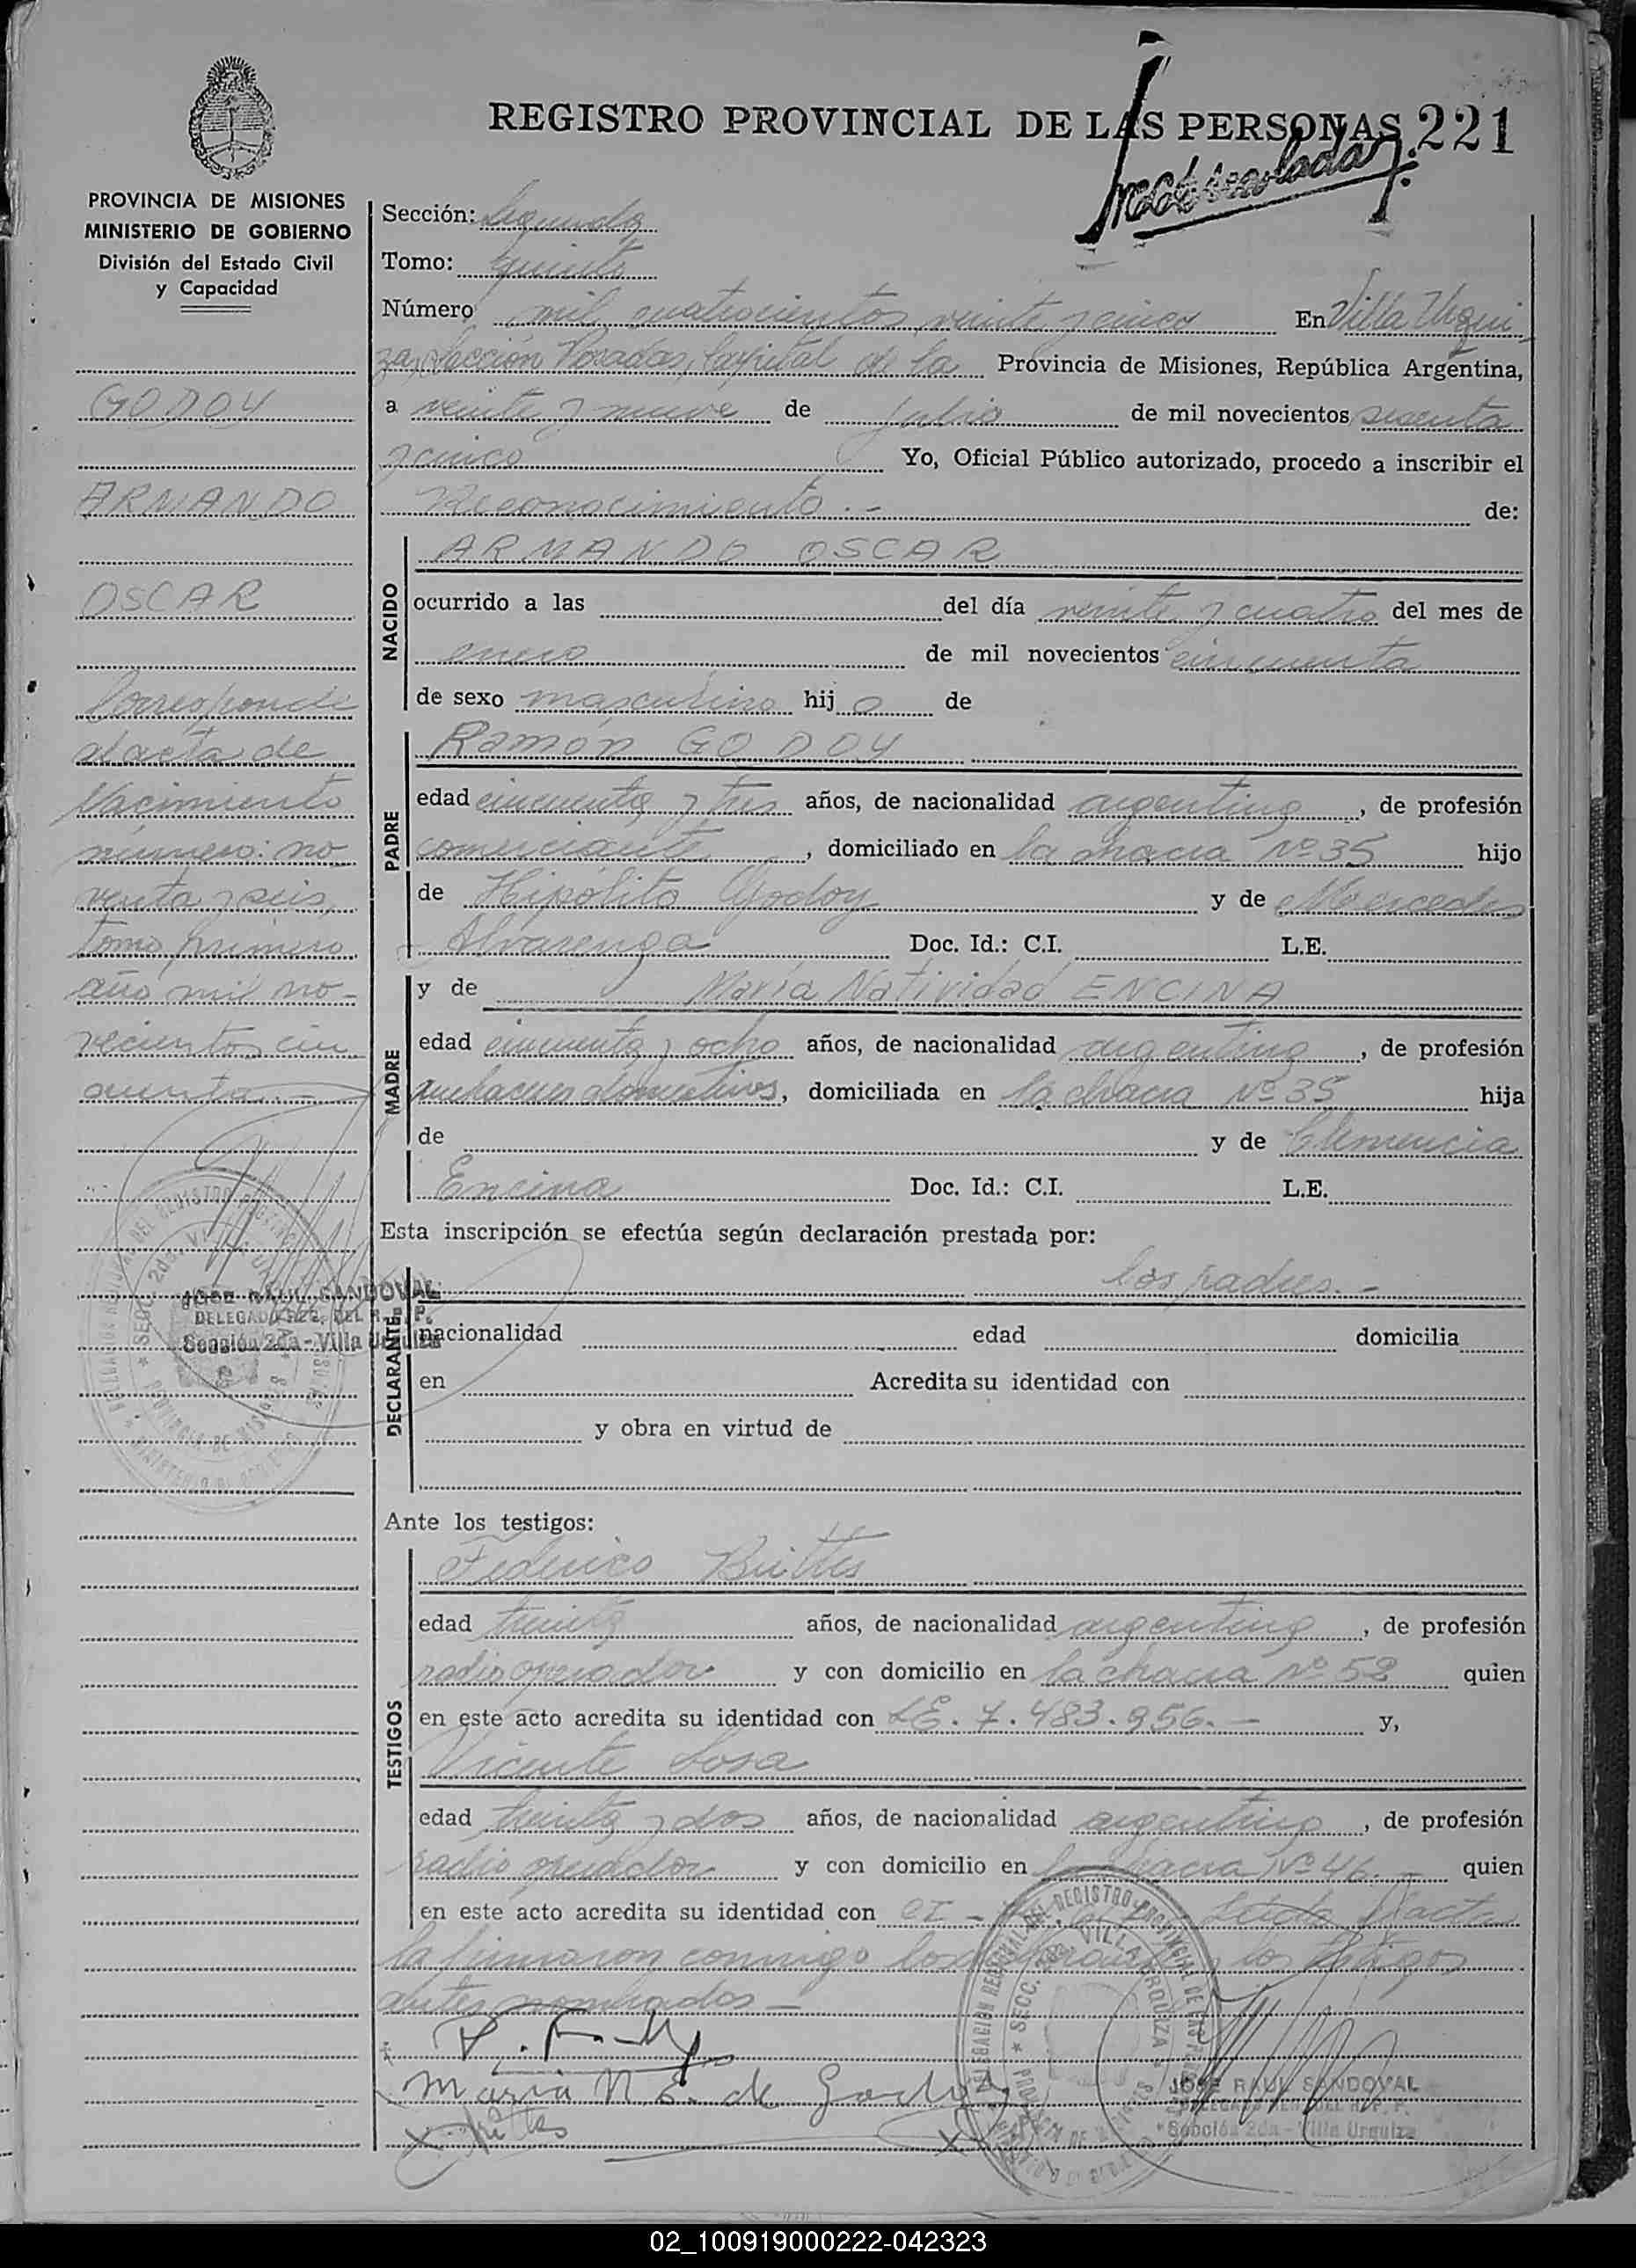 REGISTRO PROVINCIAL DE LAS PERSONAS 221
PROVINCIA DE MISIONES
MINISTERIO DE GOBIERNO
División del Estado Civil
y Capacidad
GODOY
ARMANDO
OSCAR
Corresponde
al acta de
Nacimiento
número: no
venta y seis,
tomo primero
año mil no-
vecientos cin
cuenta.-
JOSE RAUL SANDOVAL
DELEGADO REG. DEL R. P. P.
Sección 2da - Villa Urquiza
Sección: Segunda
Tomo: quinto
Número mil cuatrocientos veinte y cinco En Villa Urqui
za, Sección Posadas, Capital de la Provincia de Misiones, República Argentina,
a veinte y nueve de julio de mil novecientos sesenta
y cinco Yo, Oficial Público autorizado, procedo a inscribir el
Reconocimiento.- de:
NACIDO
ARMANDO OSCAR
ocurrido a las del día veinte y cuatro del mes de
enero de mil novecientos cincuenta
de sexo masculino hijo de
PADRE
Ramón GODOY
edad cincuenta y tres años, de nacionalidad argentina, de profesión
comerciante, domiciliado en la chacra Nº 35 hijo
de Hipólito Godoy y de Mercedes
Alvarenga Doc. Id.: C.I. L.E.
MADRE
y de María Natividad ENCINA
edad cincuenta y ocho años, de nacionalidad argentina, de profesión
quehaceres domésticos, domiciliada en la chacra Nº 35 hija
de y de Clemencia
Encina Doc. Id.: C.I. L.E.
Esta inscripción se efectúa según declaración prestada por:
DECLARANTE
los padres.-
nacionalidad edad domicilia
en Acredita su identidad con
y obra en virtud de
Ante los testigos:
TESTIGOS
Federico
edad treinta años, de nacionalidad argentina, de profesión
radio operador y con domicilio en la chacra Nº 58 quien
en este acto acredita su identidad con LE. 7.483.956.- y,
Vicente Sosa
edad treinta y dos años, de nacionalidad argentina, de profesión
radio operador y con domicilio en la chacra Nº 46.- quien
en este acto acredita su identidad con CI - Leída el acta
la firmaron conmigo los y los testigos
antes nombrados -
Maria N. E. de Godoy
JOSE RAUL SANDOVAL
DELEGADO REG. DEL R. P. P.
Sección 2da - Villa Urquiza
02_100919000222-042323